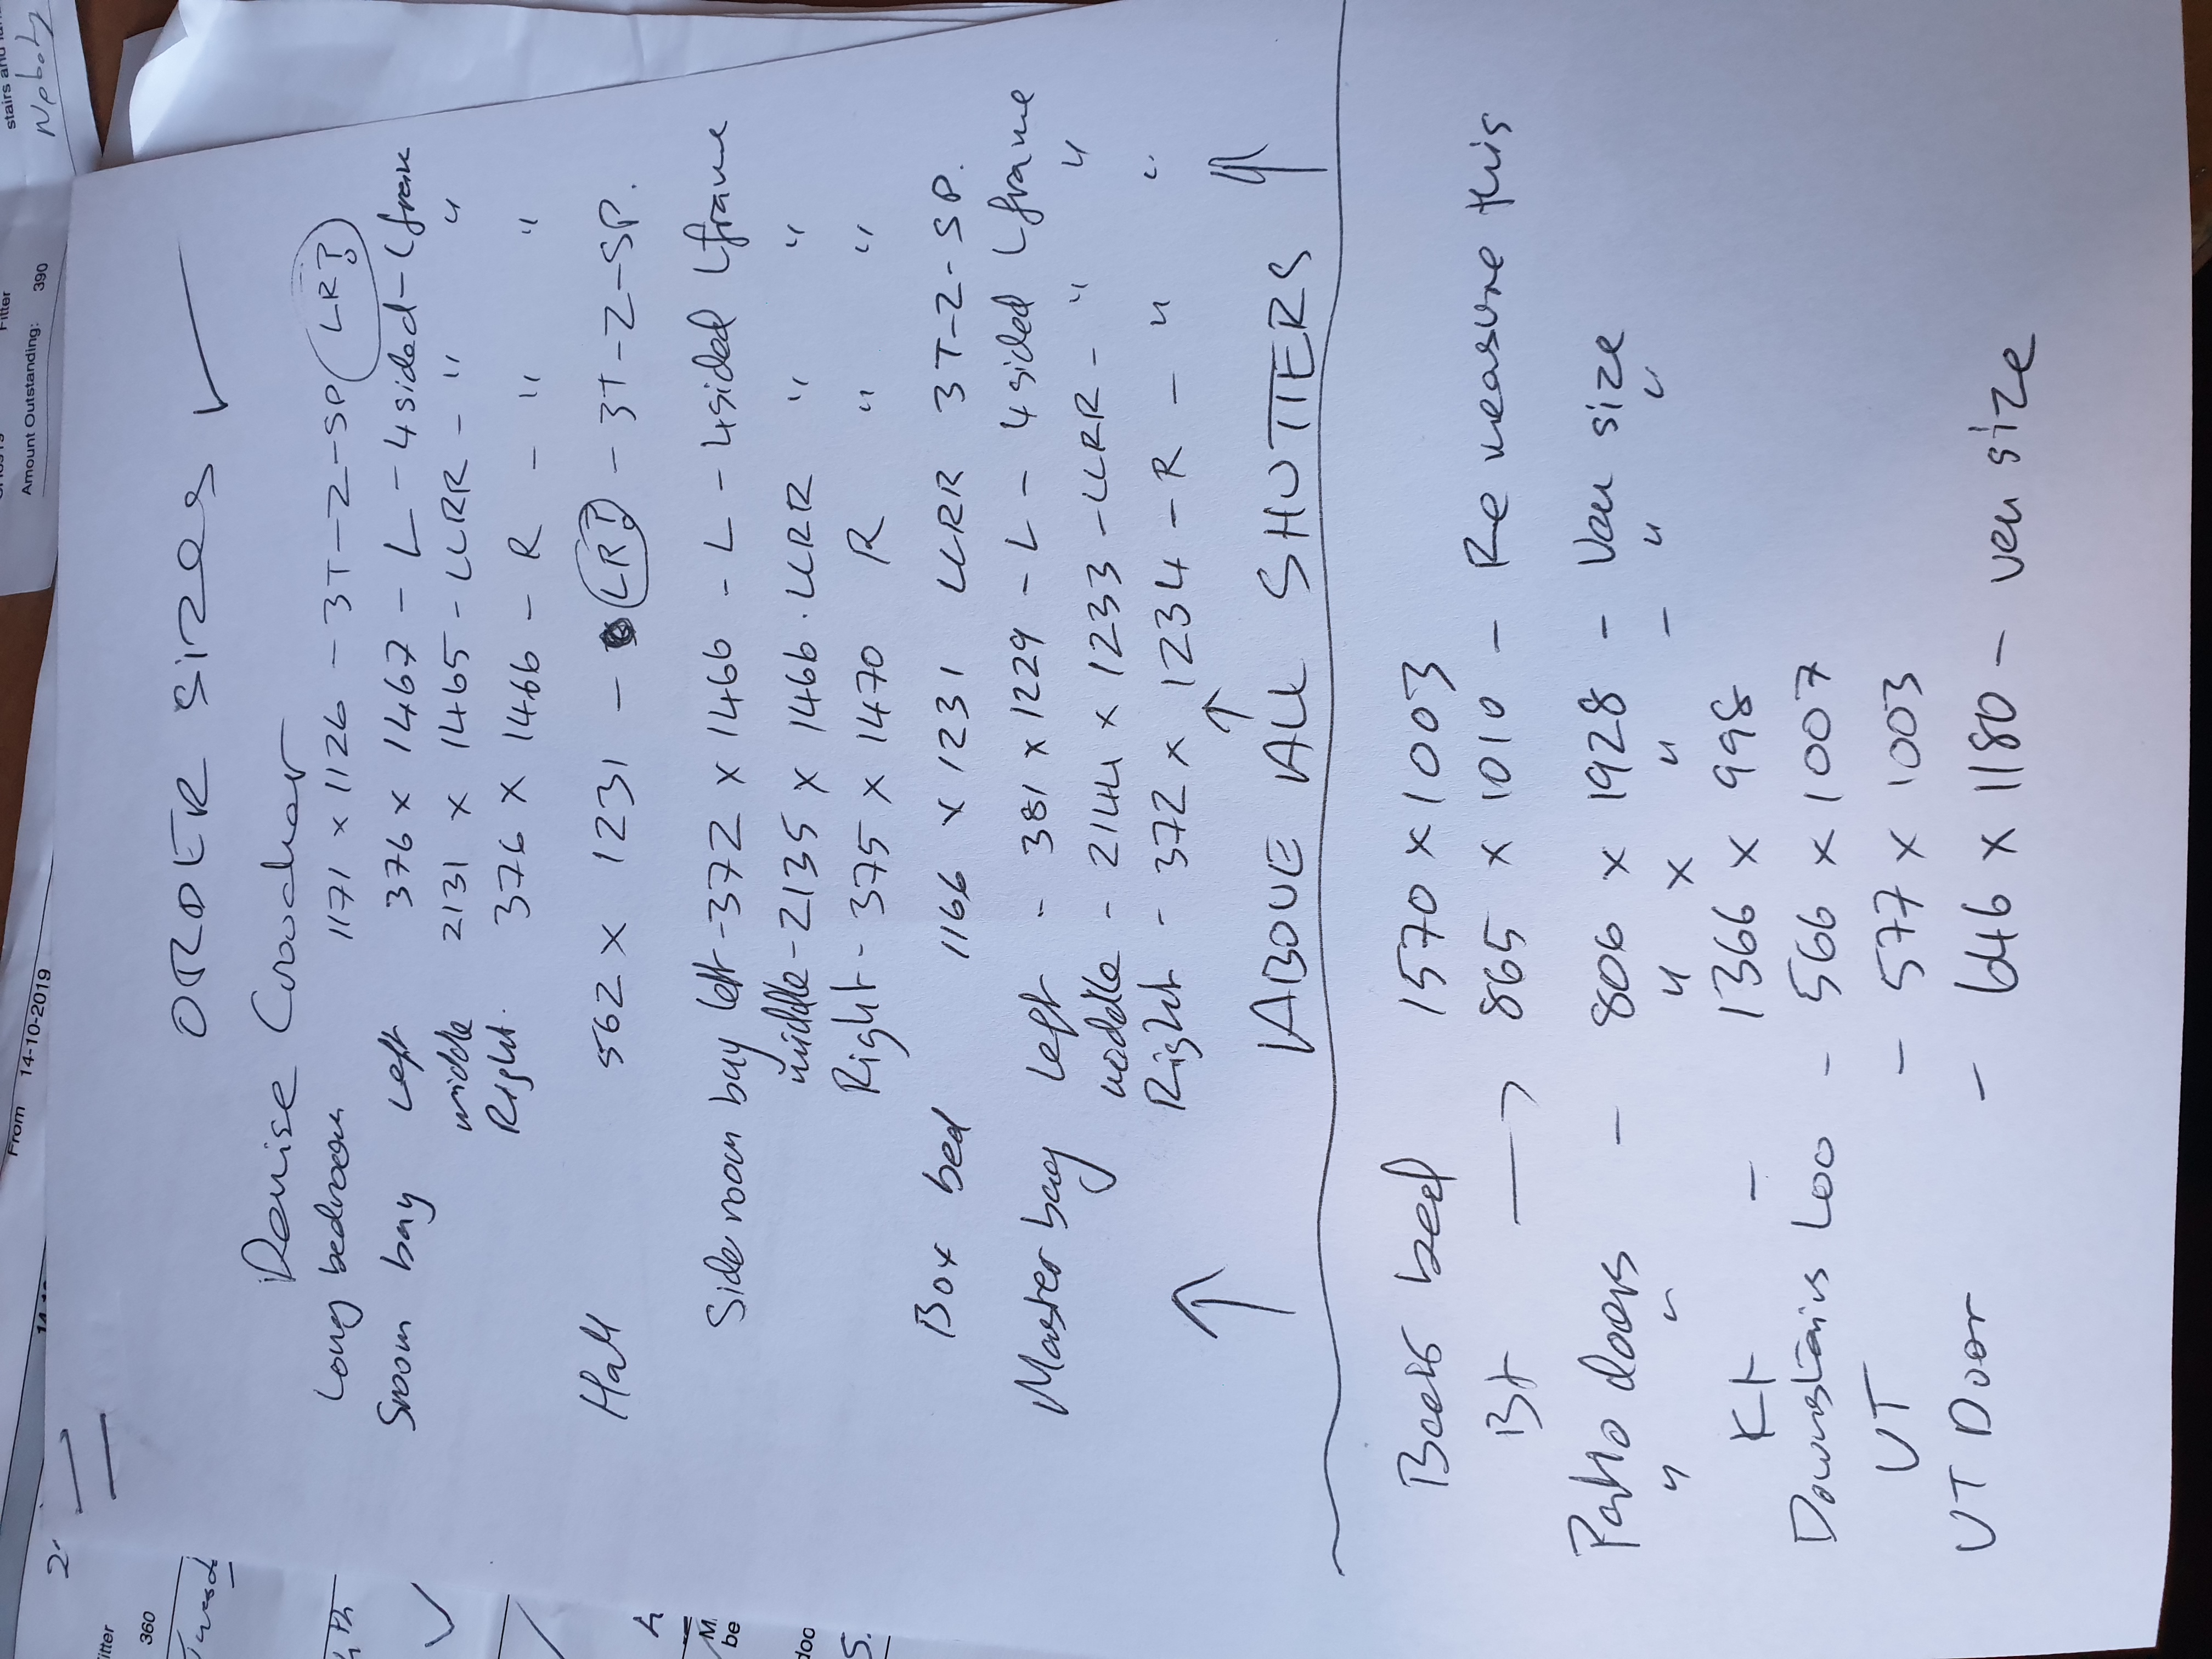 ORDER sizes ✓
Denise Croucher
Long bedroom 1171 x 1126 - 3T-Z-SP (LR?)
Sroom bay Left 376 x 1467 - L - 4sided - Lfram
middle 2131 x 1465 - LLRR - " "
Right. 376 x 1466 - R - " "
Hall 562 x 1231 - (LR?) - 3T-Z-SP.
Side room bay left - 372 x 1466 - L - 4sided Lframe
middle - 2135 x 1466 . LLRR " "
Right - 375 x 1470 R " "
Box bed 1166 x 1231 LLRR 3T-Z-SP.
Master bay Left - 381 x 1229 - L - 4sided Lframe
middle - 2144 x 1233 - LLRR - " "
Right - 372 x 1234 - R - " "
↑ ABOVE ALL SHUTTERS ↑
Back bed 1570 x 1003
Bt → 865 x 1010 - Re measure this
Patio doors - 806 x 1928 - Ven size
" " " x " - " "
Kt - 1366 x 998
Downstairs Loo - 566 x 1007
UT - 577 x 1003
UT Door - 646 x 1180 - ven size
stairs and
Fitter
Amount Outstanding: 390
From 14-10-2019
2
360
M
be
doo
S.